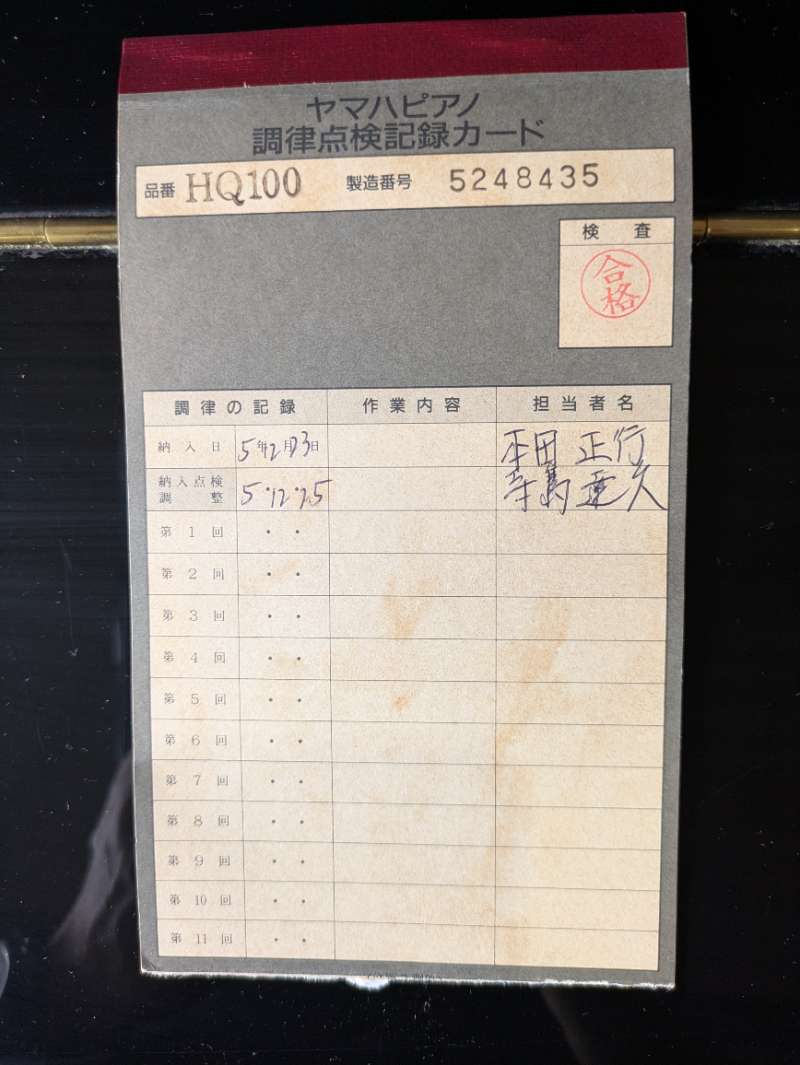 ヤマハピアノ
調律点検記録カード
品番 HQ100 製造番号 5248435
検査
合格
調律の記録 作業内容 担当者名
納入日 5年12月23日 本田 正行
納入点検調整 5・12・25 寺島
第1回 ・ ・
第2回 ・ ・
第3回 ・ ・
第4回 ・ ・
第5回 ・ ・
第6回 ・ ・
第7回 ・ ・
第8回 ・ ・
第9回 ・ ・
第10回 ・ ・
第11回 ・ ・